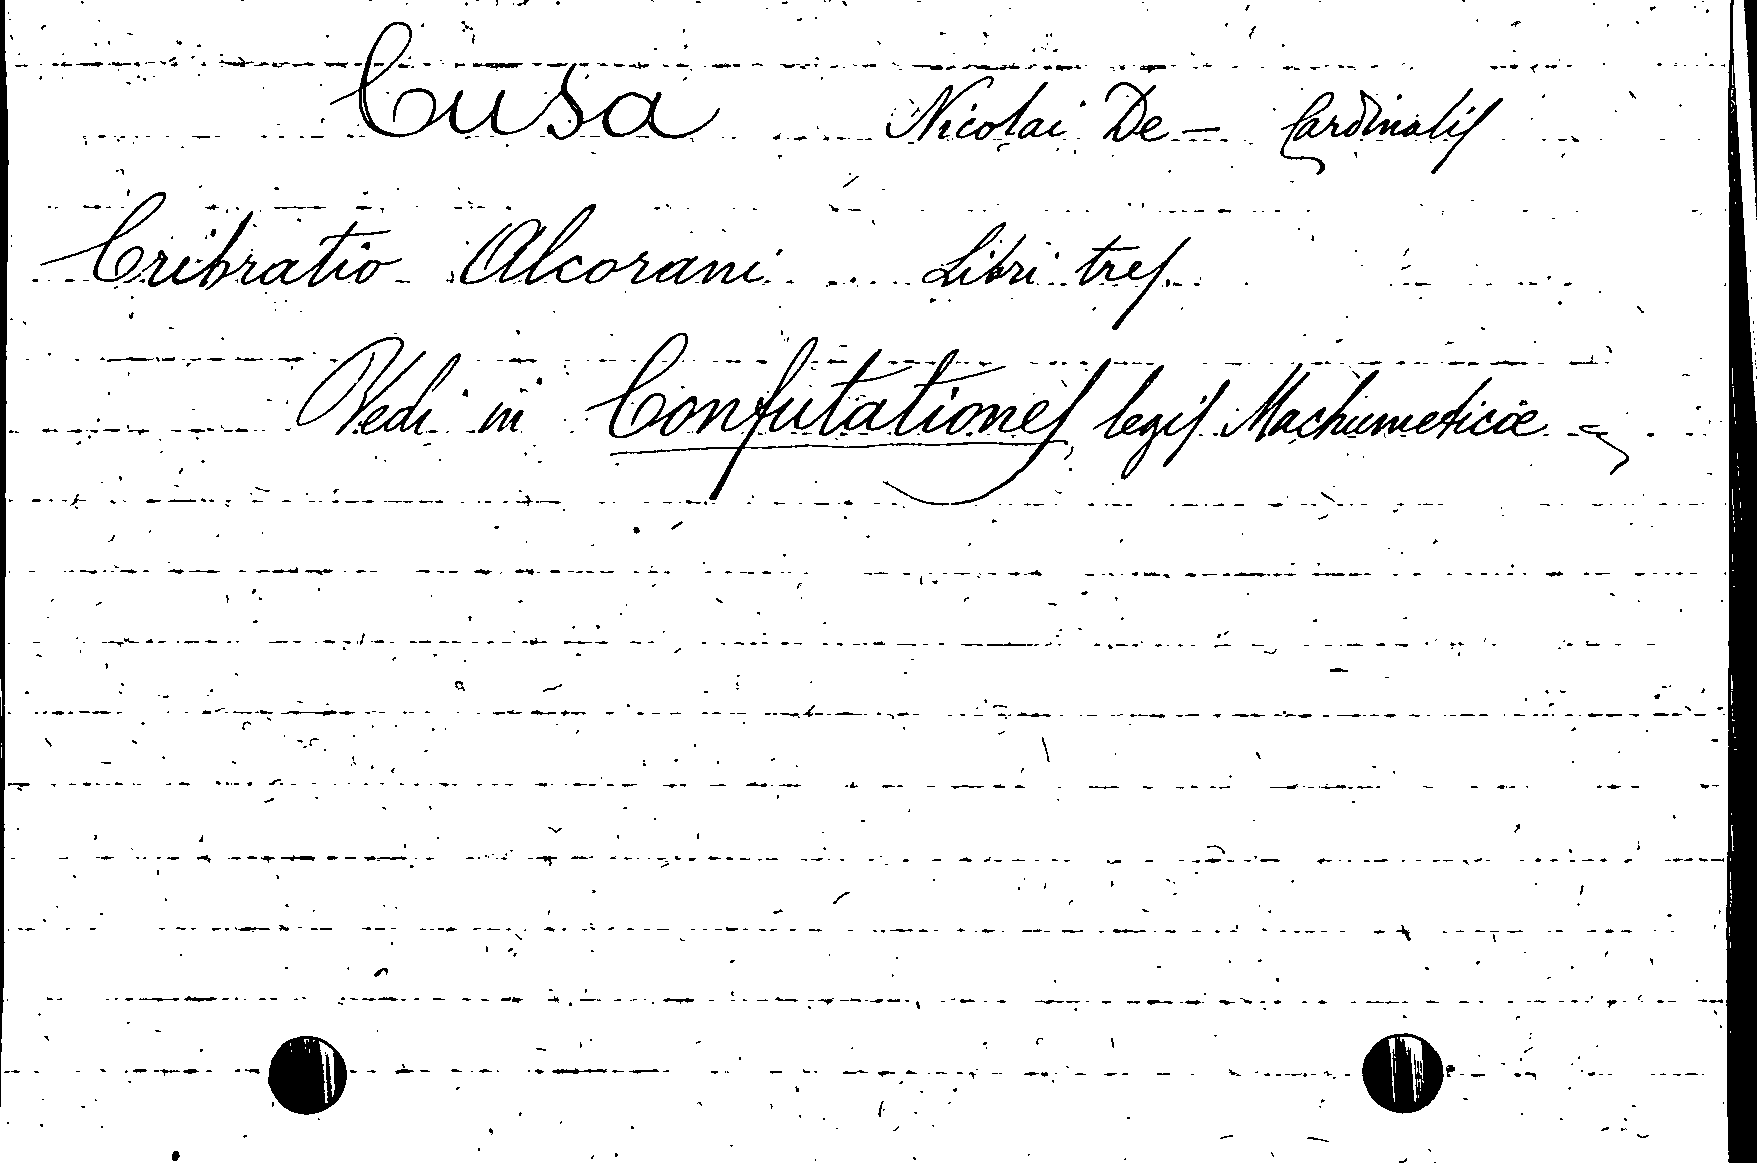 Cusa Nicolai De - Cardinalis
Cribratio Alcorani Libri tres.
Vedi in Confutationes legis Machumeticae